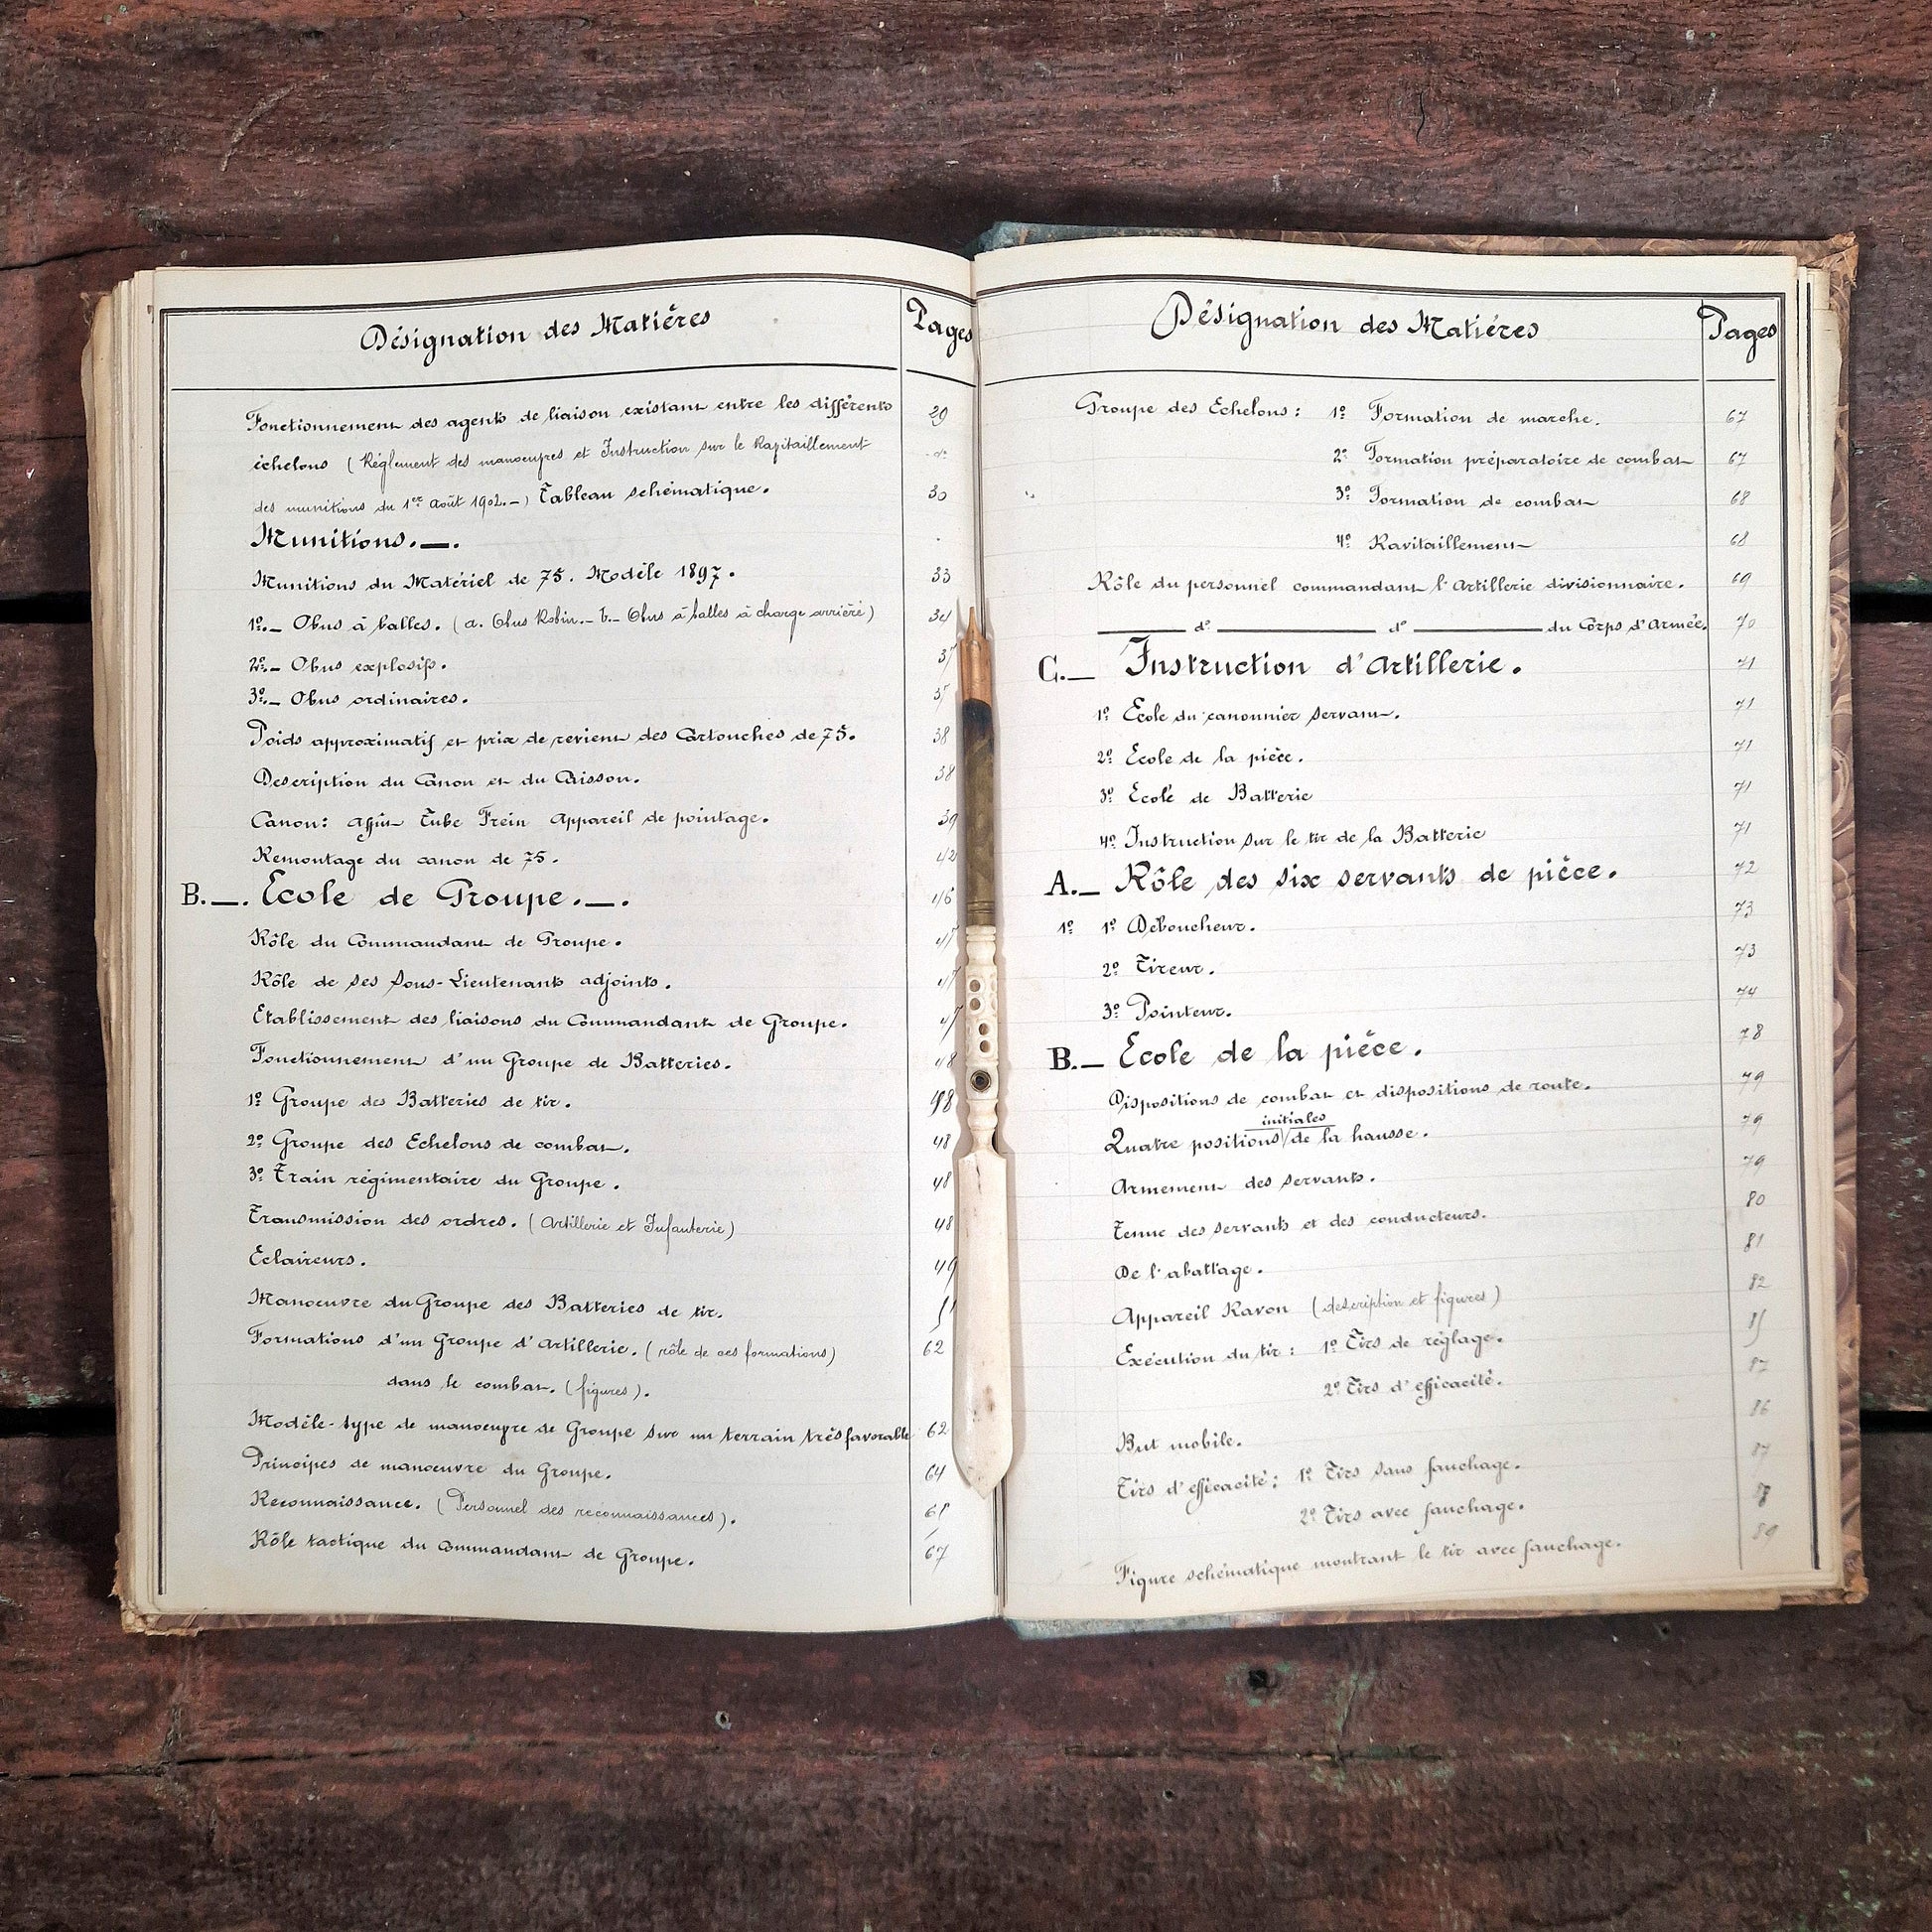 Désignation des Matières Pages
Fonctionnement des agents de liaison existant entre les différents 29
échelons (Règlement des manoeuvres et Instruction sur le Rapitaillement d°
des munitions du 1er Août 1902.-) Tableau schématique. 30
Munitions.-.
Munitions du Matériel de 75. Modèle 1897. 33
1º.- Obus à balles. (a. Obus Robin.- b.- Obus à balles à charge arrière) 34
2º.- Obus explosifs. 37
3º.- Obus ordinaires.
Poids approximatif et prix de revient des Cartouches de 75. 38
Description du Canon et du Caisson. 38
Canon: Affût Tube Frein Appareil de pointage. 39
Remontage du canon de 75. 42
B.-. Ecole de Groupe.-. 46
Rôle du Commandant de Groupe. 47
Rôle de ses Sous-Lieutenants adjoints. 47
Etablissement des liaisons du Commandant de Groupe. 47
Fonctionnement d'un Groupe de Batteries. 48
1º Groupe des Batteries de tir. 48
2º Groupe des Echelons de combat. 48
3º Train régimentaire du Groupe. 48
Transmission des ordres. (Artillerie et Infanterie) 48
Eclaireurs. 49
Manoeuvre du Groupe des Batteries de tir. 51
Formations d'un Groupe d'Artillerie. (rôle de ces formations) 62
dans le combat. (figures).
Modèle-type de manoeuvre de Groupe sur un terrain très favorable 62
Principes de manoeuvre du Groupe. 64
Reconnaissance. (Personnel des reconnaissances). 65
Rôle tactique du Commandant de Groupe. 67
Désignation des Matières Pages
Groupe des Echelons: 1º Formation de marche. 67
2º Formation préparatoire de combat 67
3º Formation de combat 68
4º Ravitaillement 68
Rôle du personnel commandant l'Artillerie divisionnaire. 69
d° d° du Corps d'Armée. 70
C.- Instruction d'Artillerie. 71
1º Ecole du canonnier servant. 71
2º Ecole de la pièce. 71
3º Ecole de Batterie 71
4º Instruction sur le tir de la Batterie 71
A.- Rôle des six servants de pièce. 72
1º 1º Déboucheur. 73
2º Tireur. 73
3º Pointeur. 74
B.- Ecole de la pièce. 78
Dispositions de combat et dispositions de route. 79
initiales
Quatre positions/de la hausse. 79
Armement des servants. 79
Tenue des servants et des conducteurs. 80
De l'abattage. 81
Appareil Ravon (description et figures) 82
Exécution du tir: 1º Tirs de réglage. 85
2º Tirs d'efficacité. 87
But mobile. 86
Tirs d'efficacité: 1º Tirs sans fauchage. 87
2º Tirs avec fauchage.
Figure schématique montrant le tir avec fauchage. 89